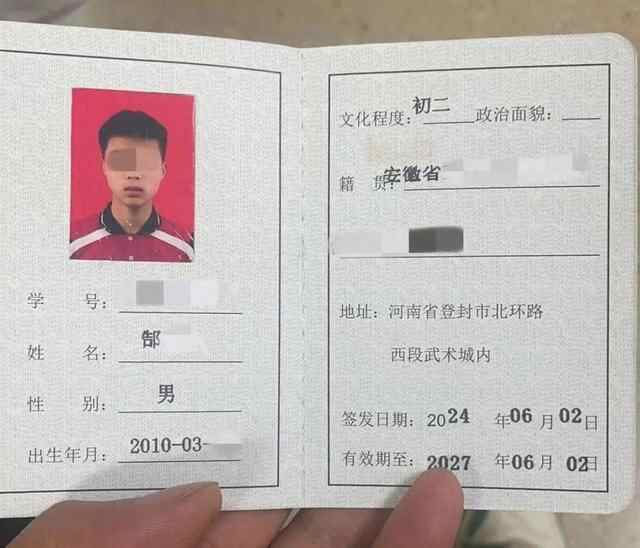 学 号：
姓 名： 郜
性 别： 男
出生年月： 2010-03-
文化程度： 初二 政治面貌：
籍 贯： 安徽省
地址：河南省登封市北环路
西段武术城内
签发日期：2024 年 06 月 02 日
有效期至：2027 年 06 月 02 日